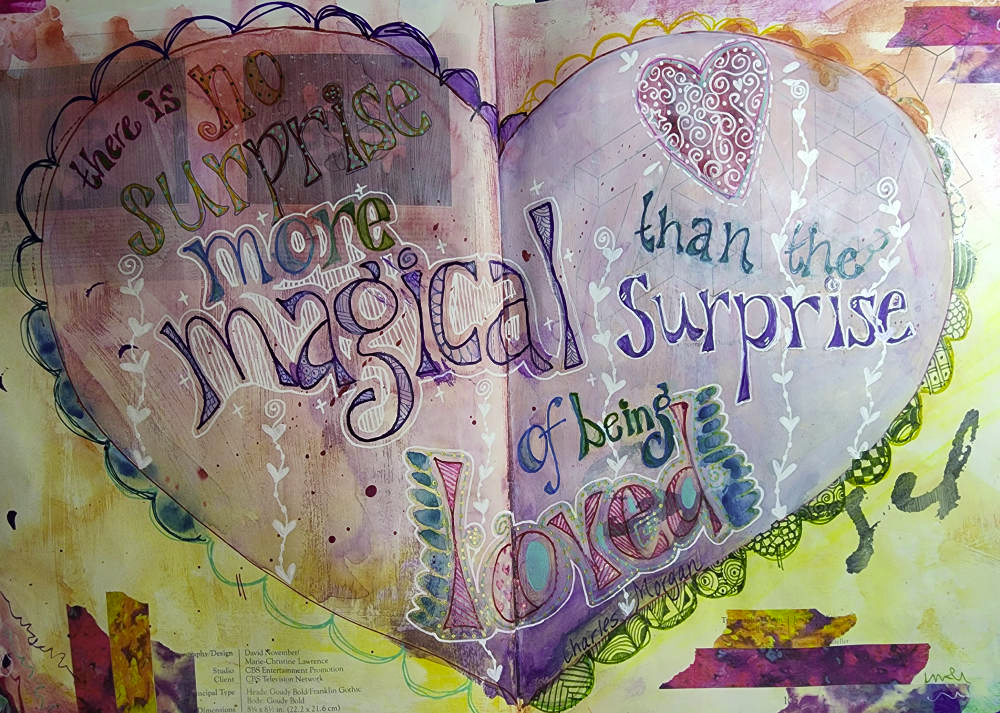 there is no
surprise
more
magical
than the
surprise
of being
loved
charles Morgan
graphy/Design David November/
Marie-Christine Lawrence
Studio CBS Entertainment Promotion
Client CBS Television Network
incipal Type Heads: Goudy Bold/Franklin Gothic
Body: Goudy Bold
Dimensions 8¾ x 8½ in. (22.2 x 21.6 cm)